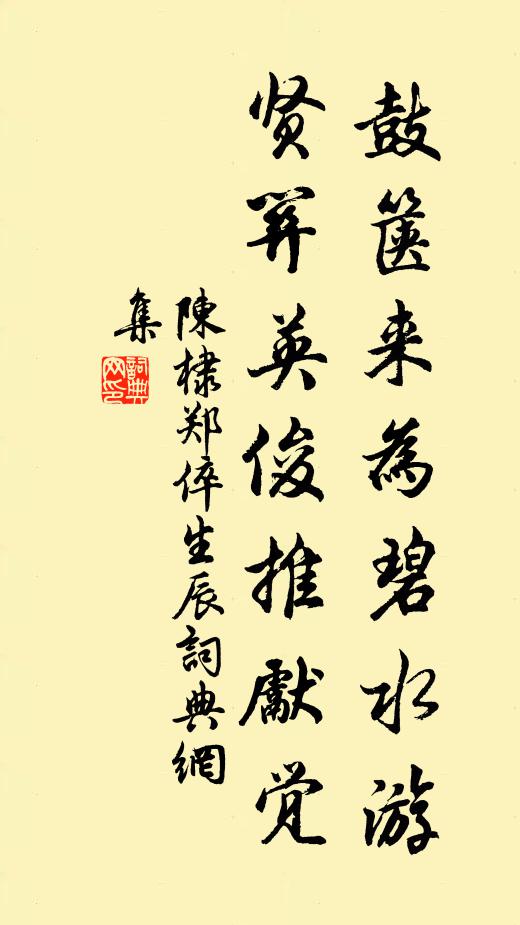 鼓箧来為碧水游
贤關英俊推獻觉
陳棣郑倅生辰詞典網
集
詞典网印